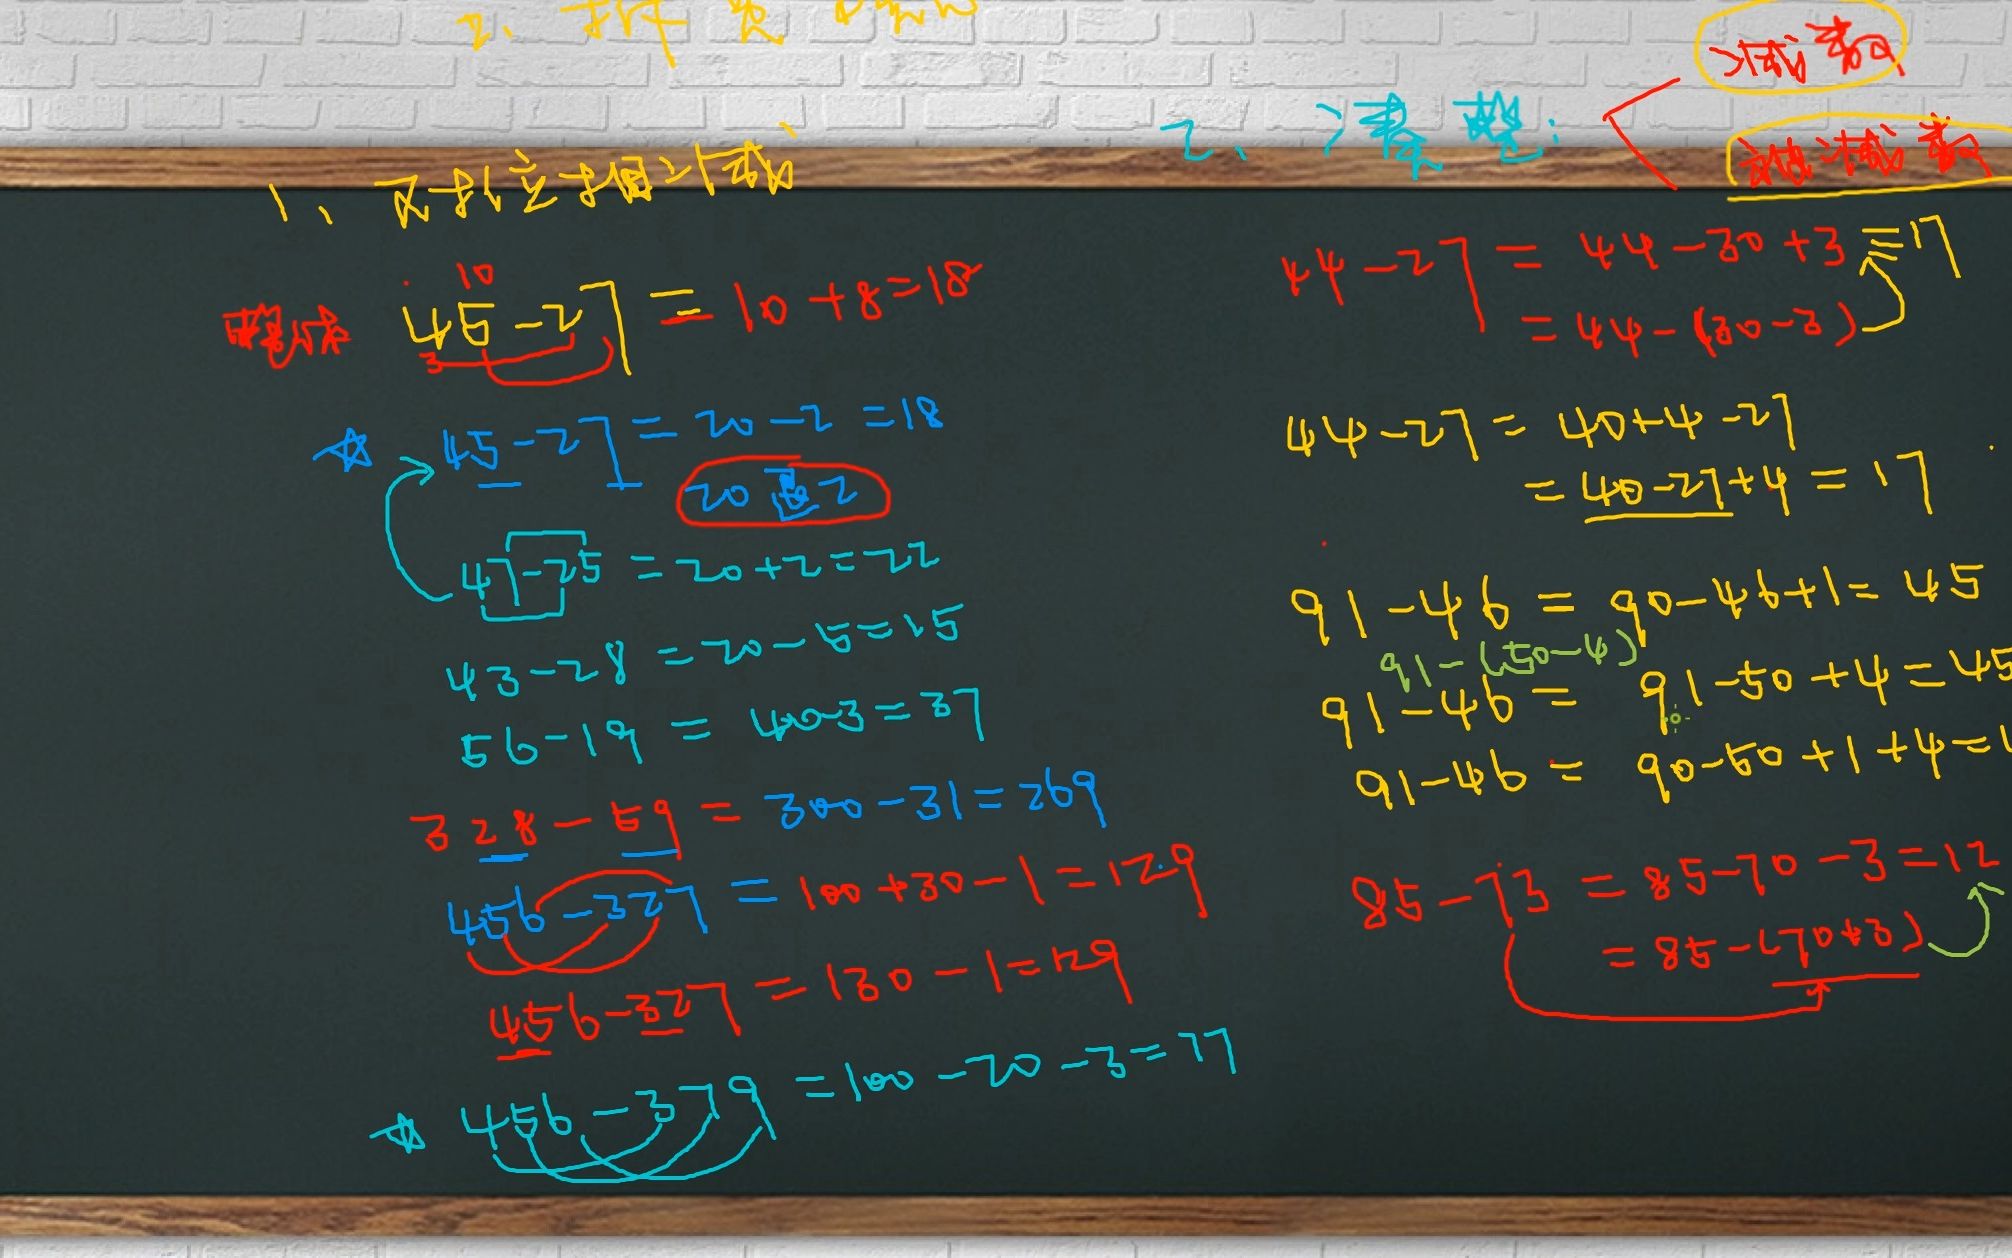 2、拆
1、对位相减
10
45-27=10+8=18
3
45-27=20-2=18
20差2
47-25=20+2=22
43-28=20-5=15
56-19=40-3=37
328-59=300-31=269
456-327=100+30-1=129
456-327=130-1=129
456-379=100-20-3=77
2、凑整:
减数
被减数
44-27=44-30+3=17
=44-(30-3)
44-27=40+4-27
=40-27+4=17
91-46=90-46+1=45
91-(50-4)
91-46=91-50+4=45
91-46=90-50+1+4=
85-73=85-70-3=12
=85-(70+3)